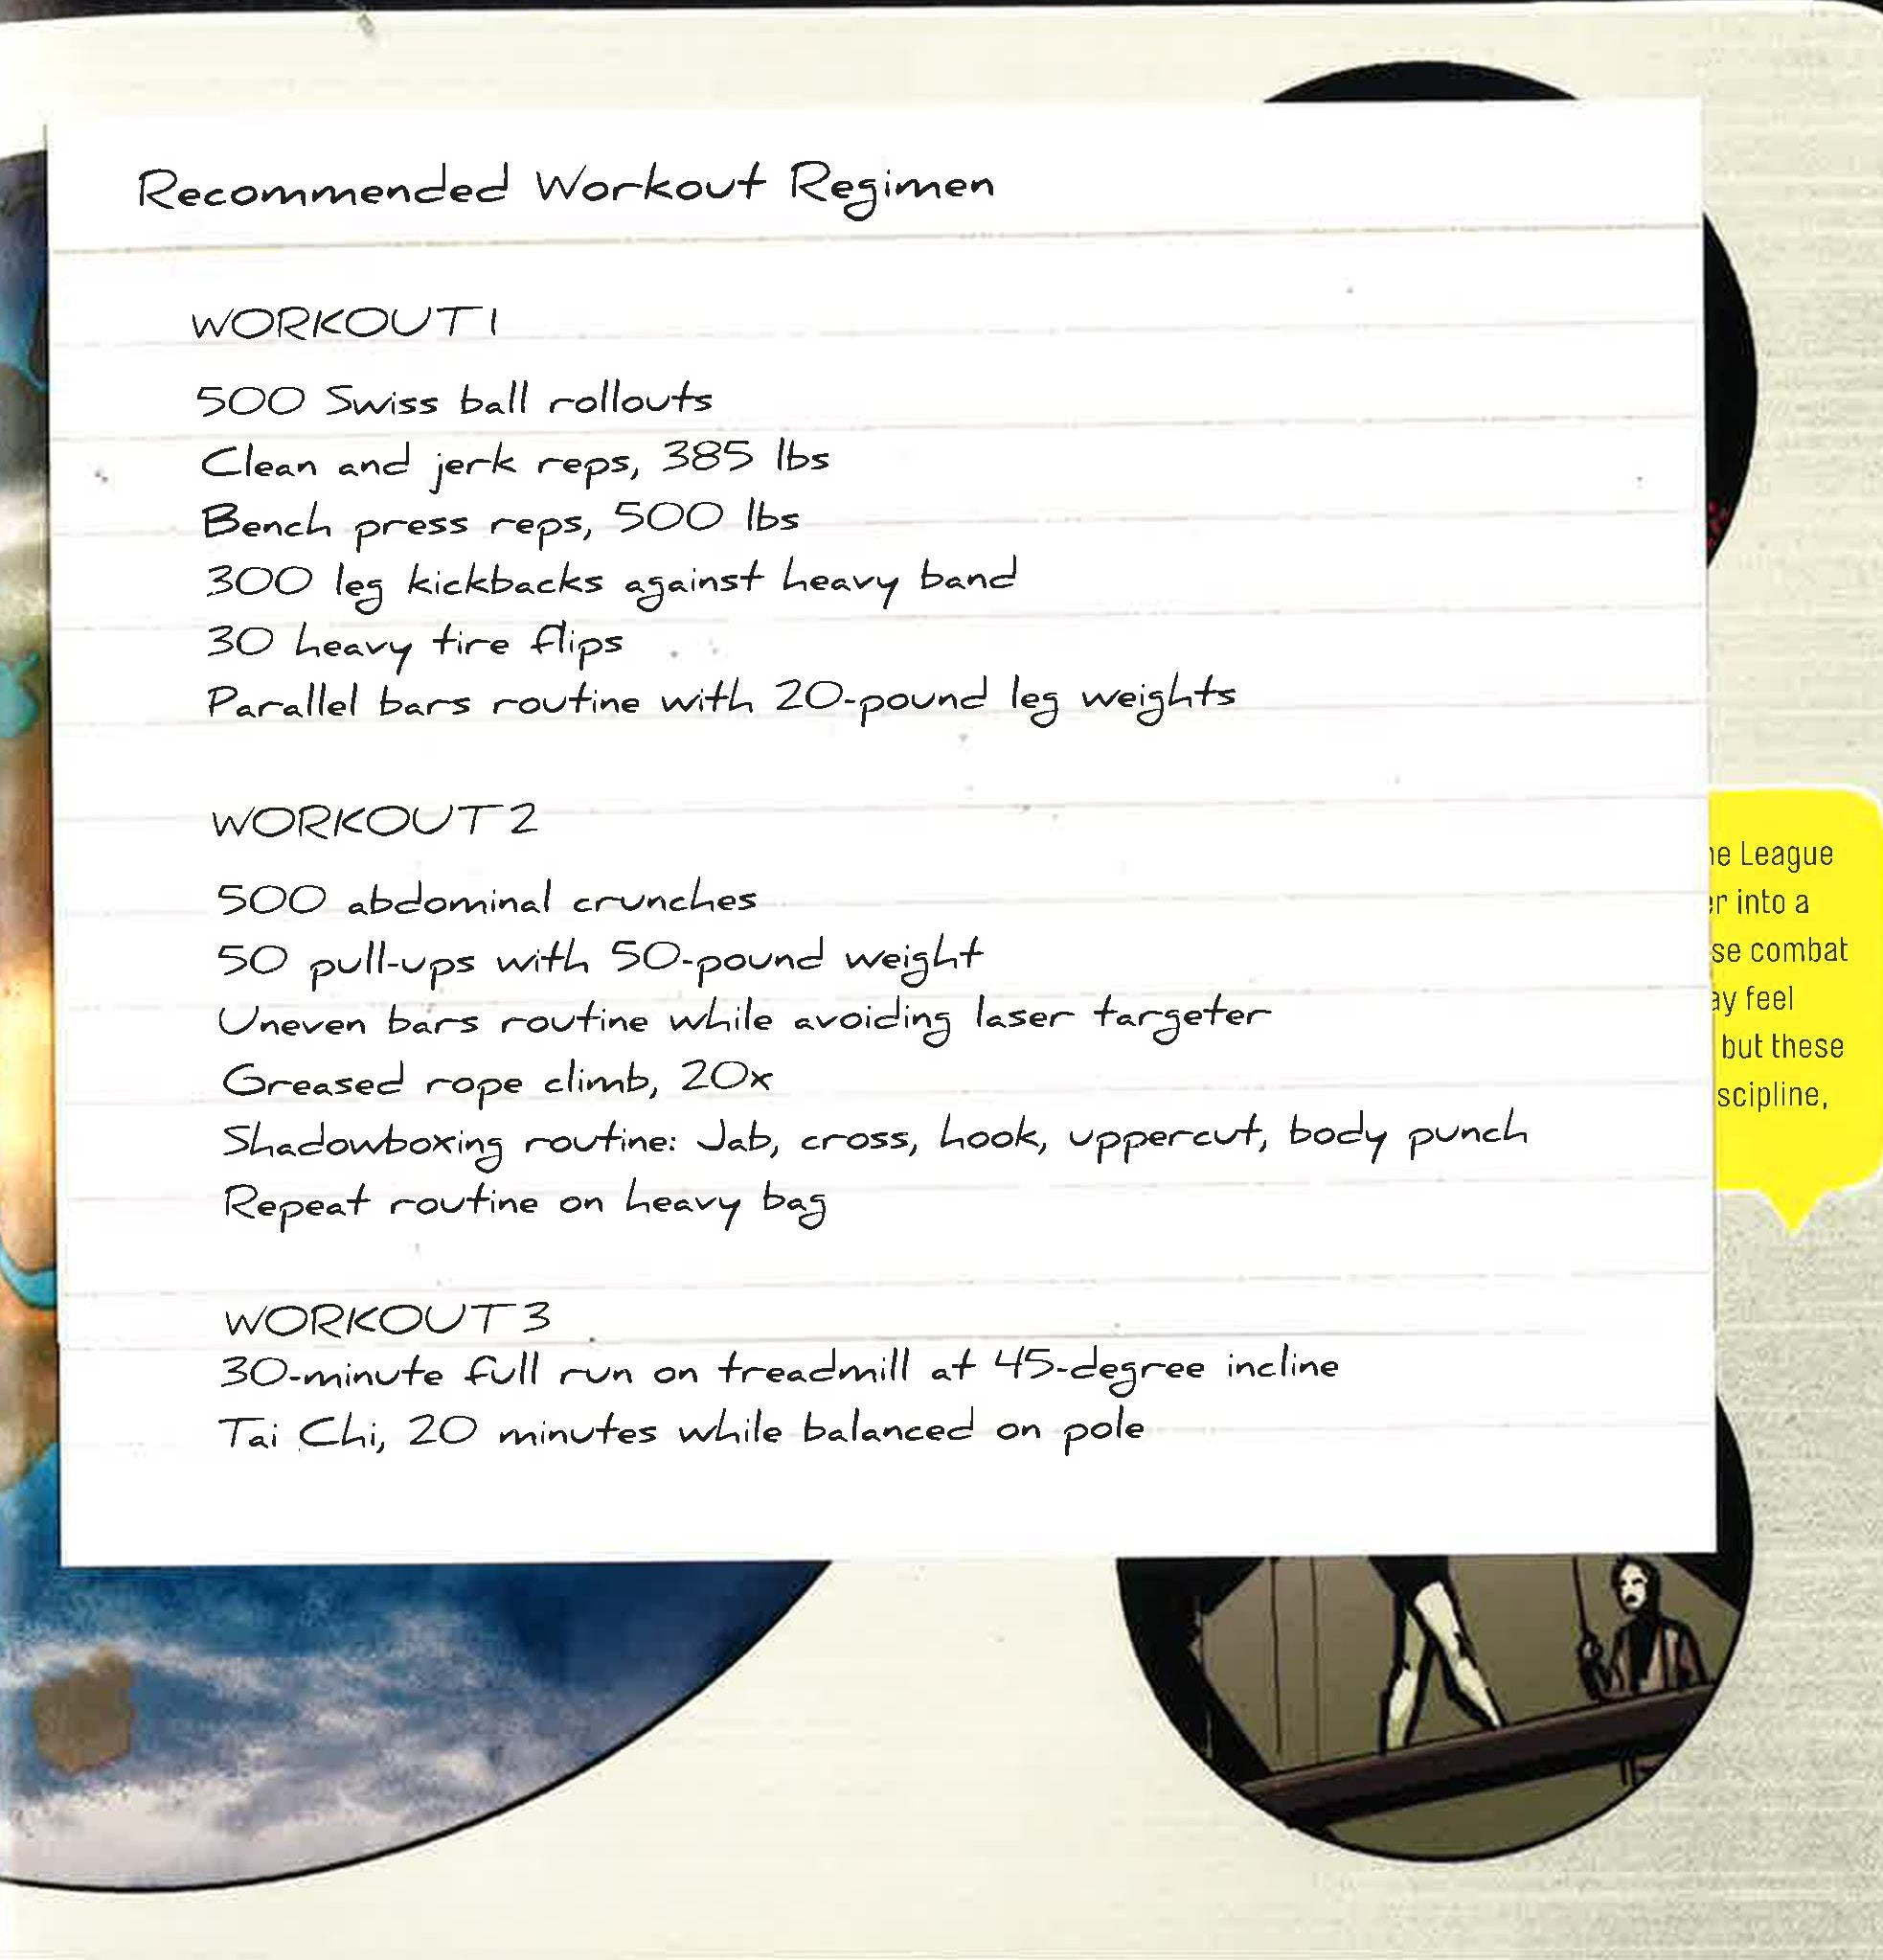 Recommended Workout Regimen
WORKOUT 1
500 Swiss ball rollouts
Clean and jerk reps, 385 lbs
Bench press reps, 500 lbs
300 leg kickbacks against heavy band
30 heavy tire flips
Parallel bars routine with 20-pound leg weights
WORKOUT 2
500 abdominal crunches
50 pull-ups with 50-pound weight
Uneven bars routine while avoiding laser targeter
Greased rope climb, 20x
Shadowboxing routine: Jab, cross, hook, uppercut, body punch
Repeat routine on heavy bag
WORKOUT 3
30-minute full run on treadmill at 45-degree incline
Tai Chi, 20 minutes while balanced on pole
League
into a
combat
feel
but these